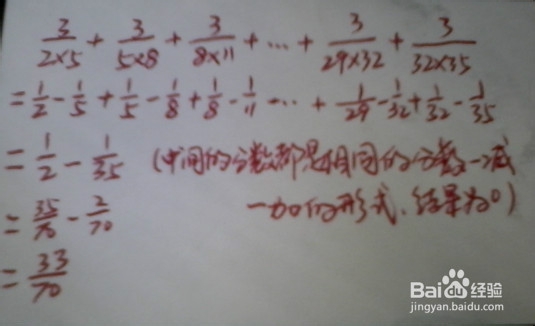 3/2×5 + 3/5×8 + 3/8×11 + ... + 3/29×32 + 3/32×35
= 1/2 - 1/5 + 1/5 - 1/8 + 1/8 - 1/11 ... + 1/29 - 1/32 + 1/32 - 1/35
= 1/2 - 1/35 (中间的分数都是相同的分数一减
= 35/70 - 2/70 一加的形式.结果为0)
= 33/70
Baidu 经验
jingyan.baidu.com